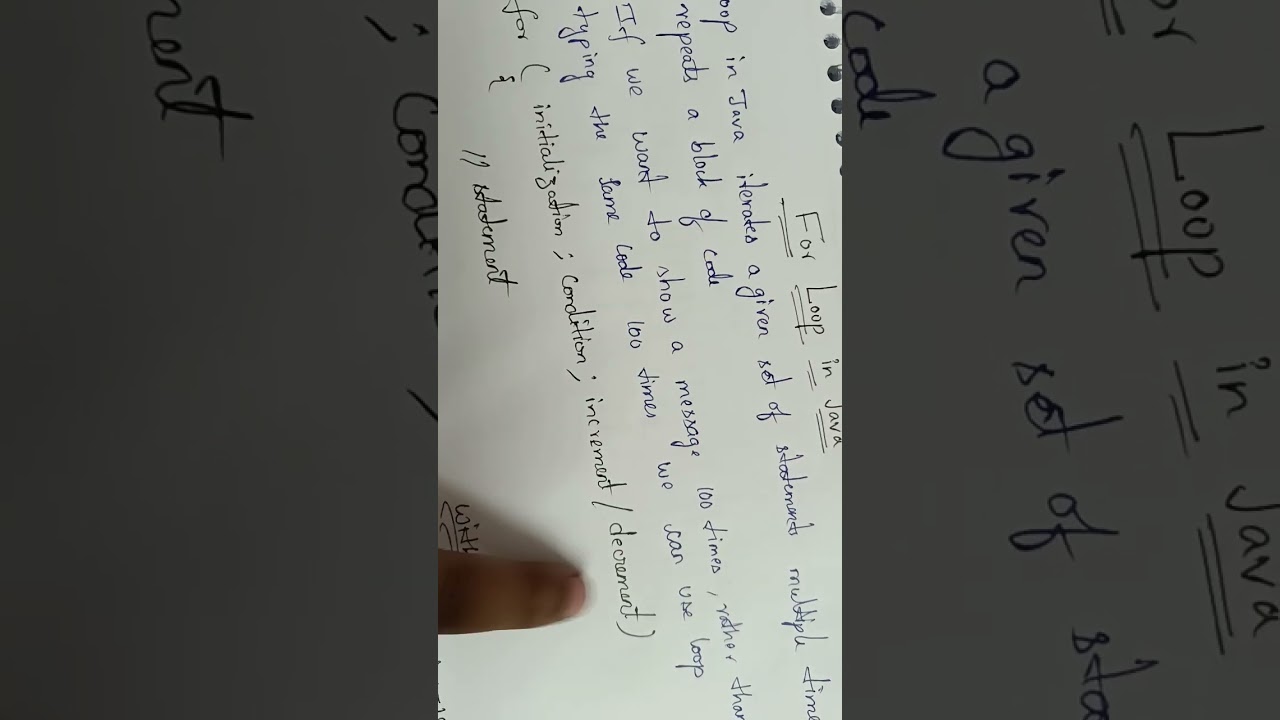 For Loop in Java
oop in Java iterates a given set of statements multiple time
repeats a block of code
If we want to show a message 100 times, rather than
typing the same code 100 times we can use loop
for ( initialization ; condition ; increment / decrement )
{
// statement
with